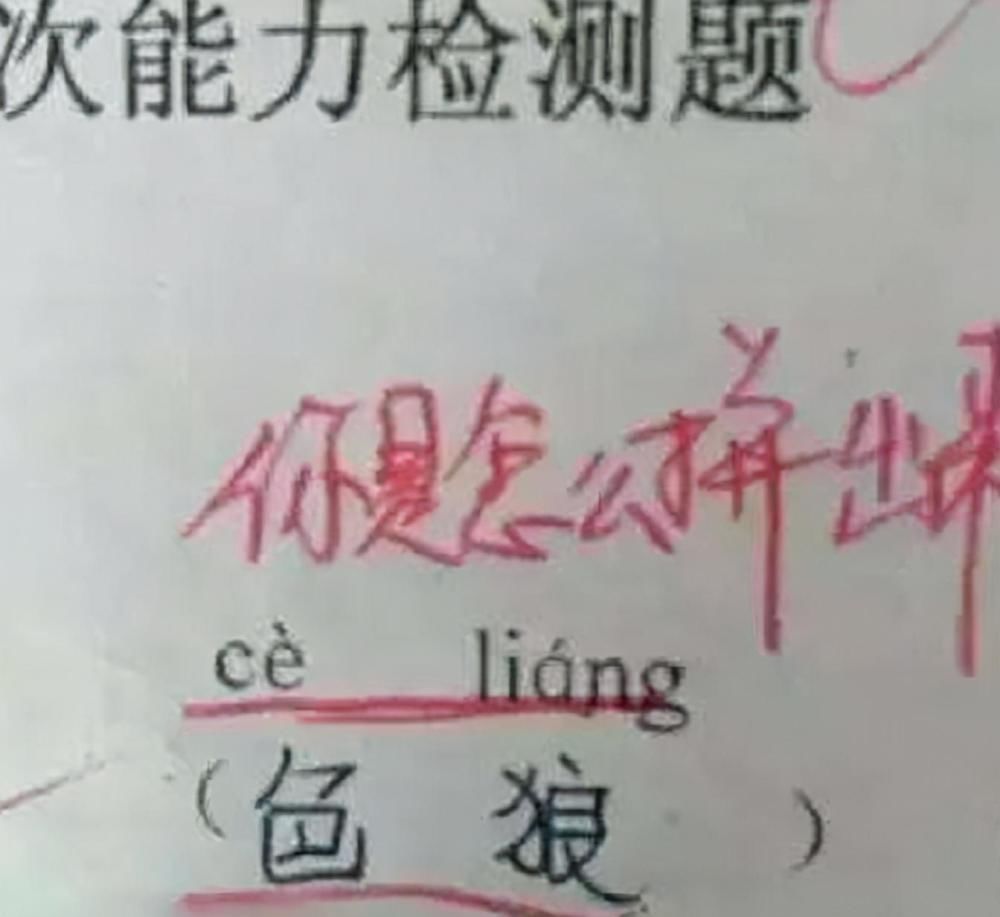 次能力检测题
你是怎么拼出来
cè liáng
（色狼）